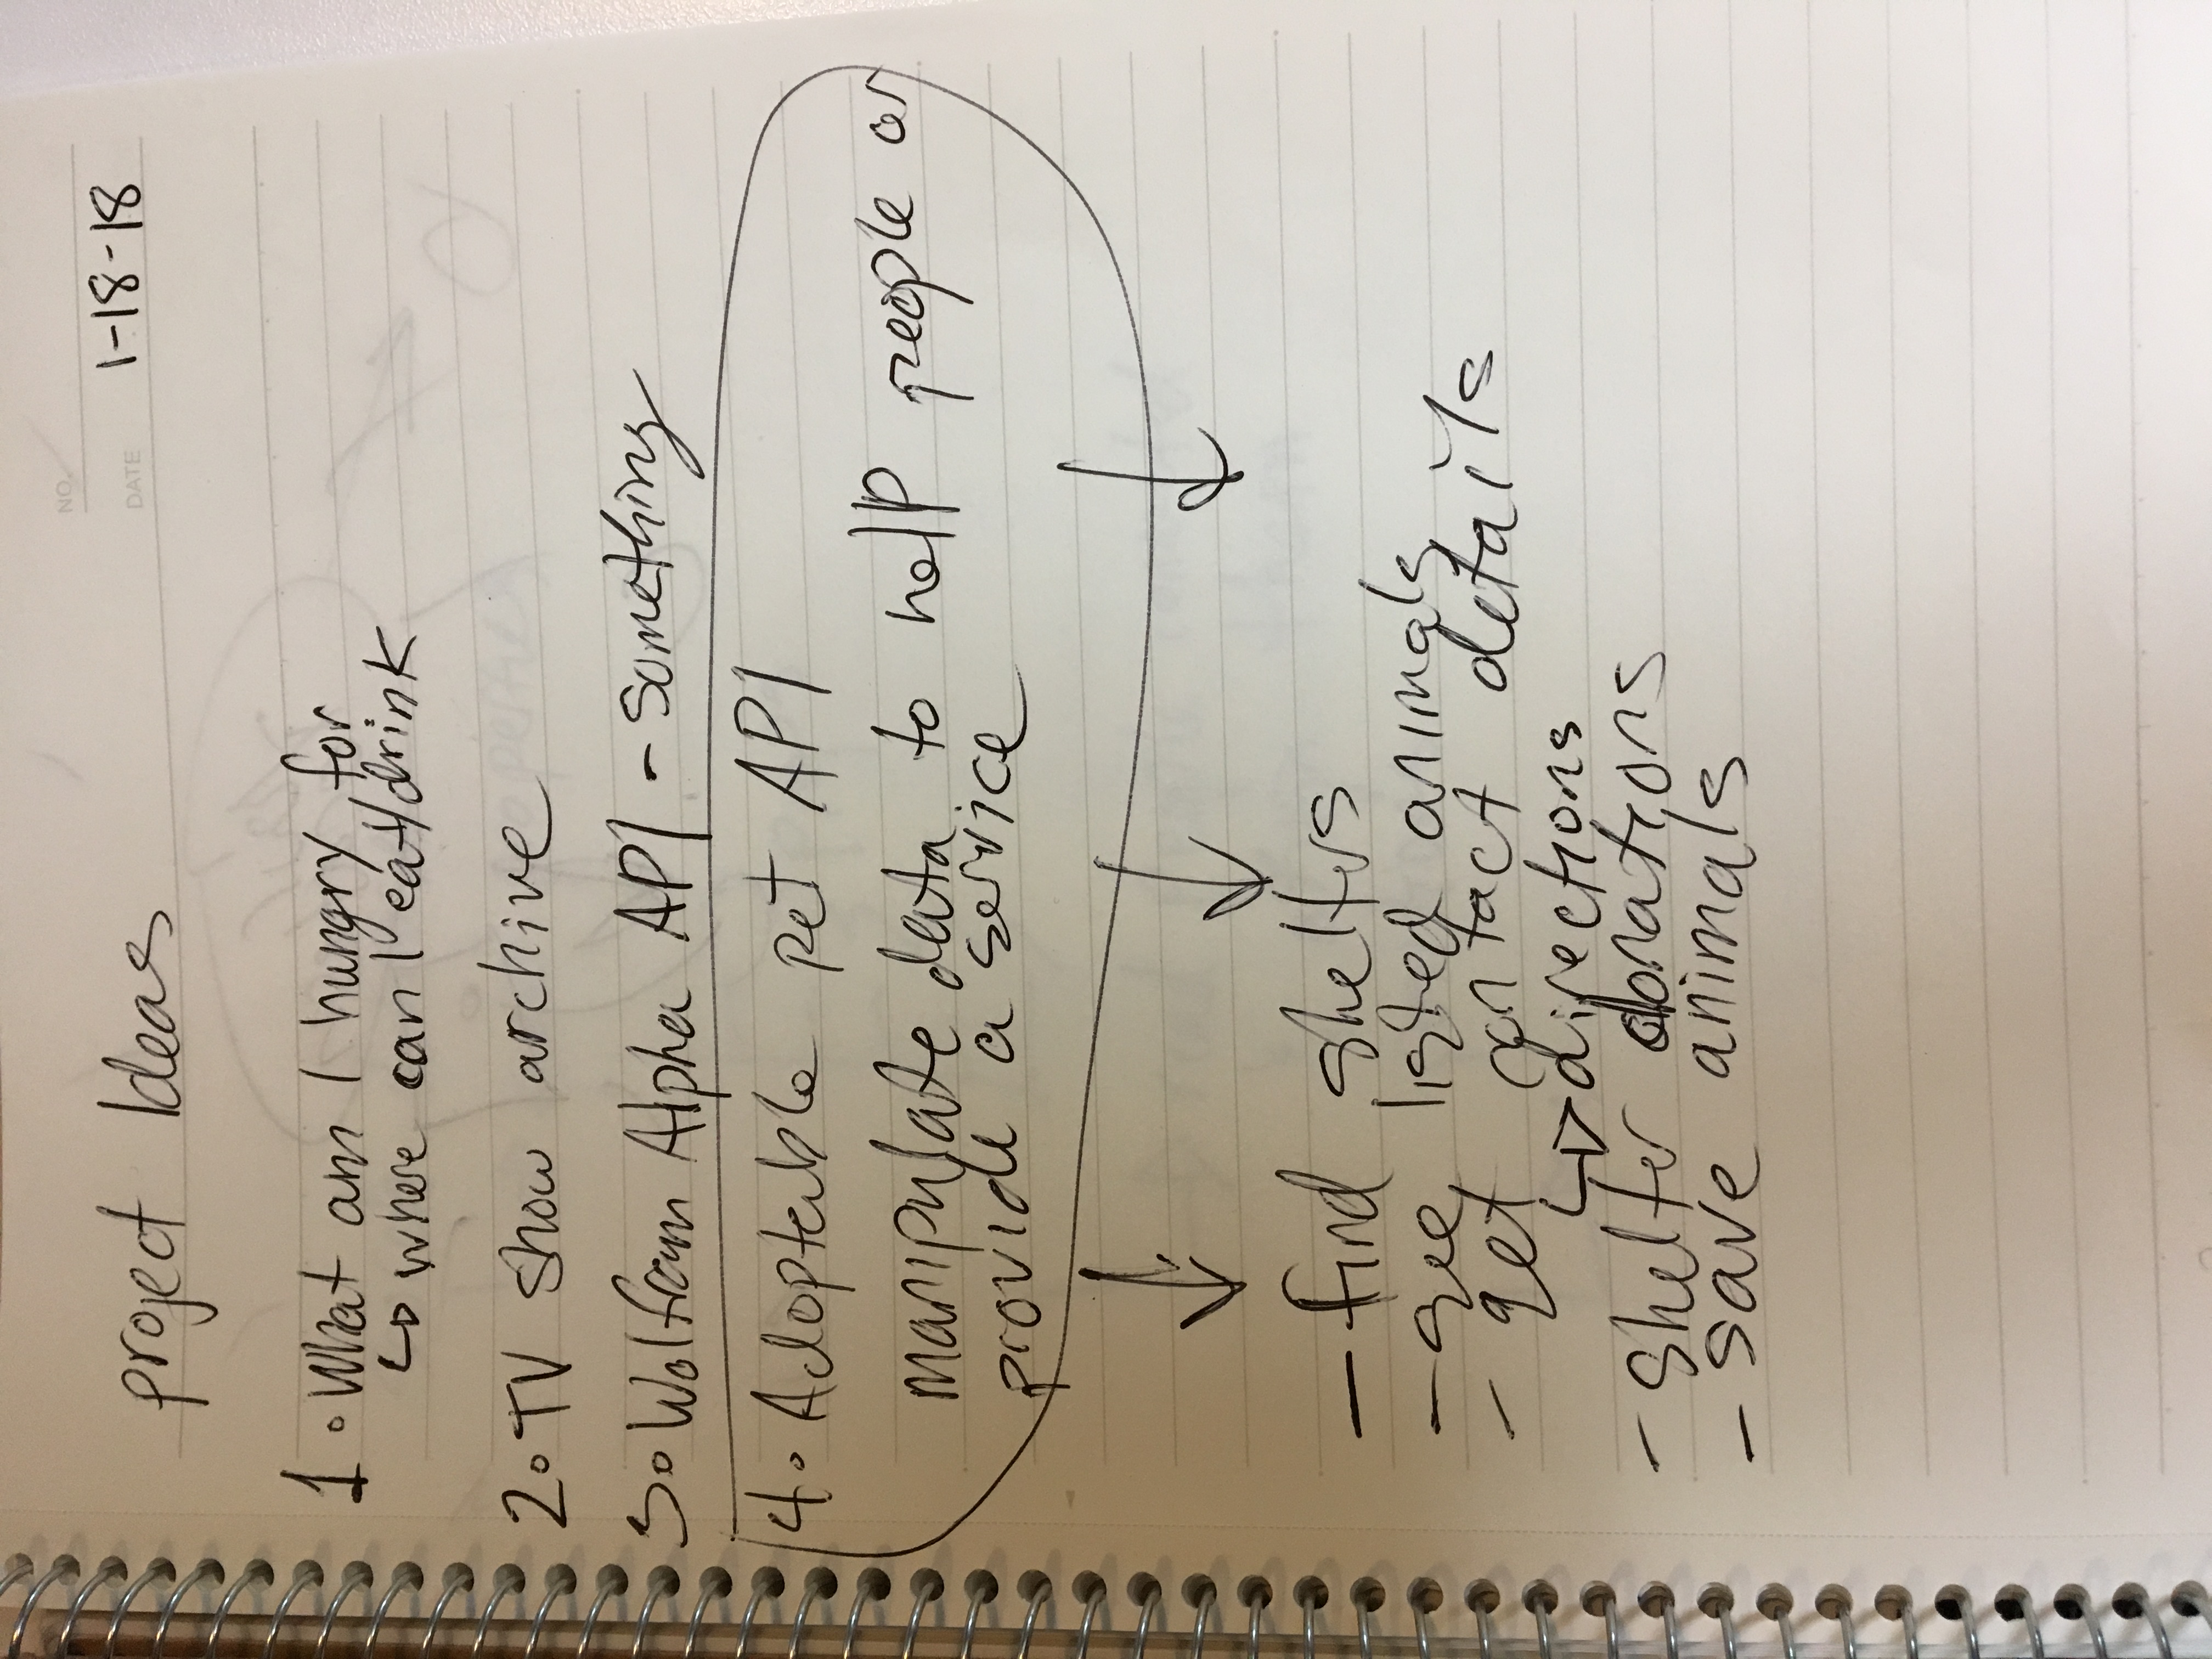 NO.
DATE 1-18-18
project Ideas
1. What am I hungry for
↳ where can I eat/drink
2. TV show archive
3. Wolfram Alpha API - something
4. Adoptable pet API
manipulate data to help people or
provide a service
- find shelters
- see listed animals
- get contact details
↳ directions
- shelter donations
- save animals